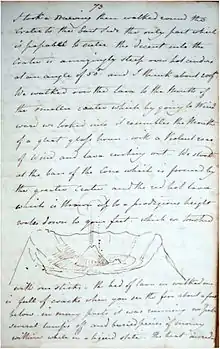 73
I took a drawing then walked round the
Crater to the East side the only part which
is passable to enter the descent into the
Crater is amazingly steep over hot cinders
at an angle of 50° and I think about 200 ft
We walked over the lava to the Mouth of
the smaller crater which by going to Wind
ward we looked into it resembles the Mouth
of a great glass house with a Radiant
of Wind and lava cooking out We stood
at the base of the Cone which is formed by
the greater Crater and the red hot lava
which is thrown up to a prodigious height
rolls down to your feet which we touched
with our sticks the bed of lava we walked on
is full of cracks when you see the fire about a foot
below in many parts it was running we put
several lumps off and buried pieces of money
within while in a liquid state The heat